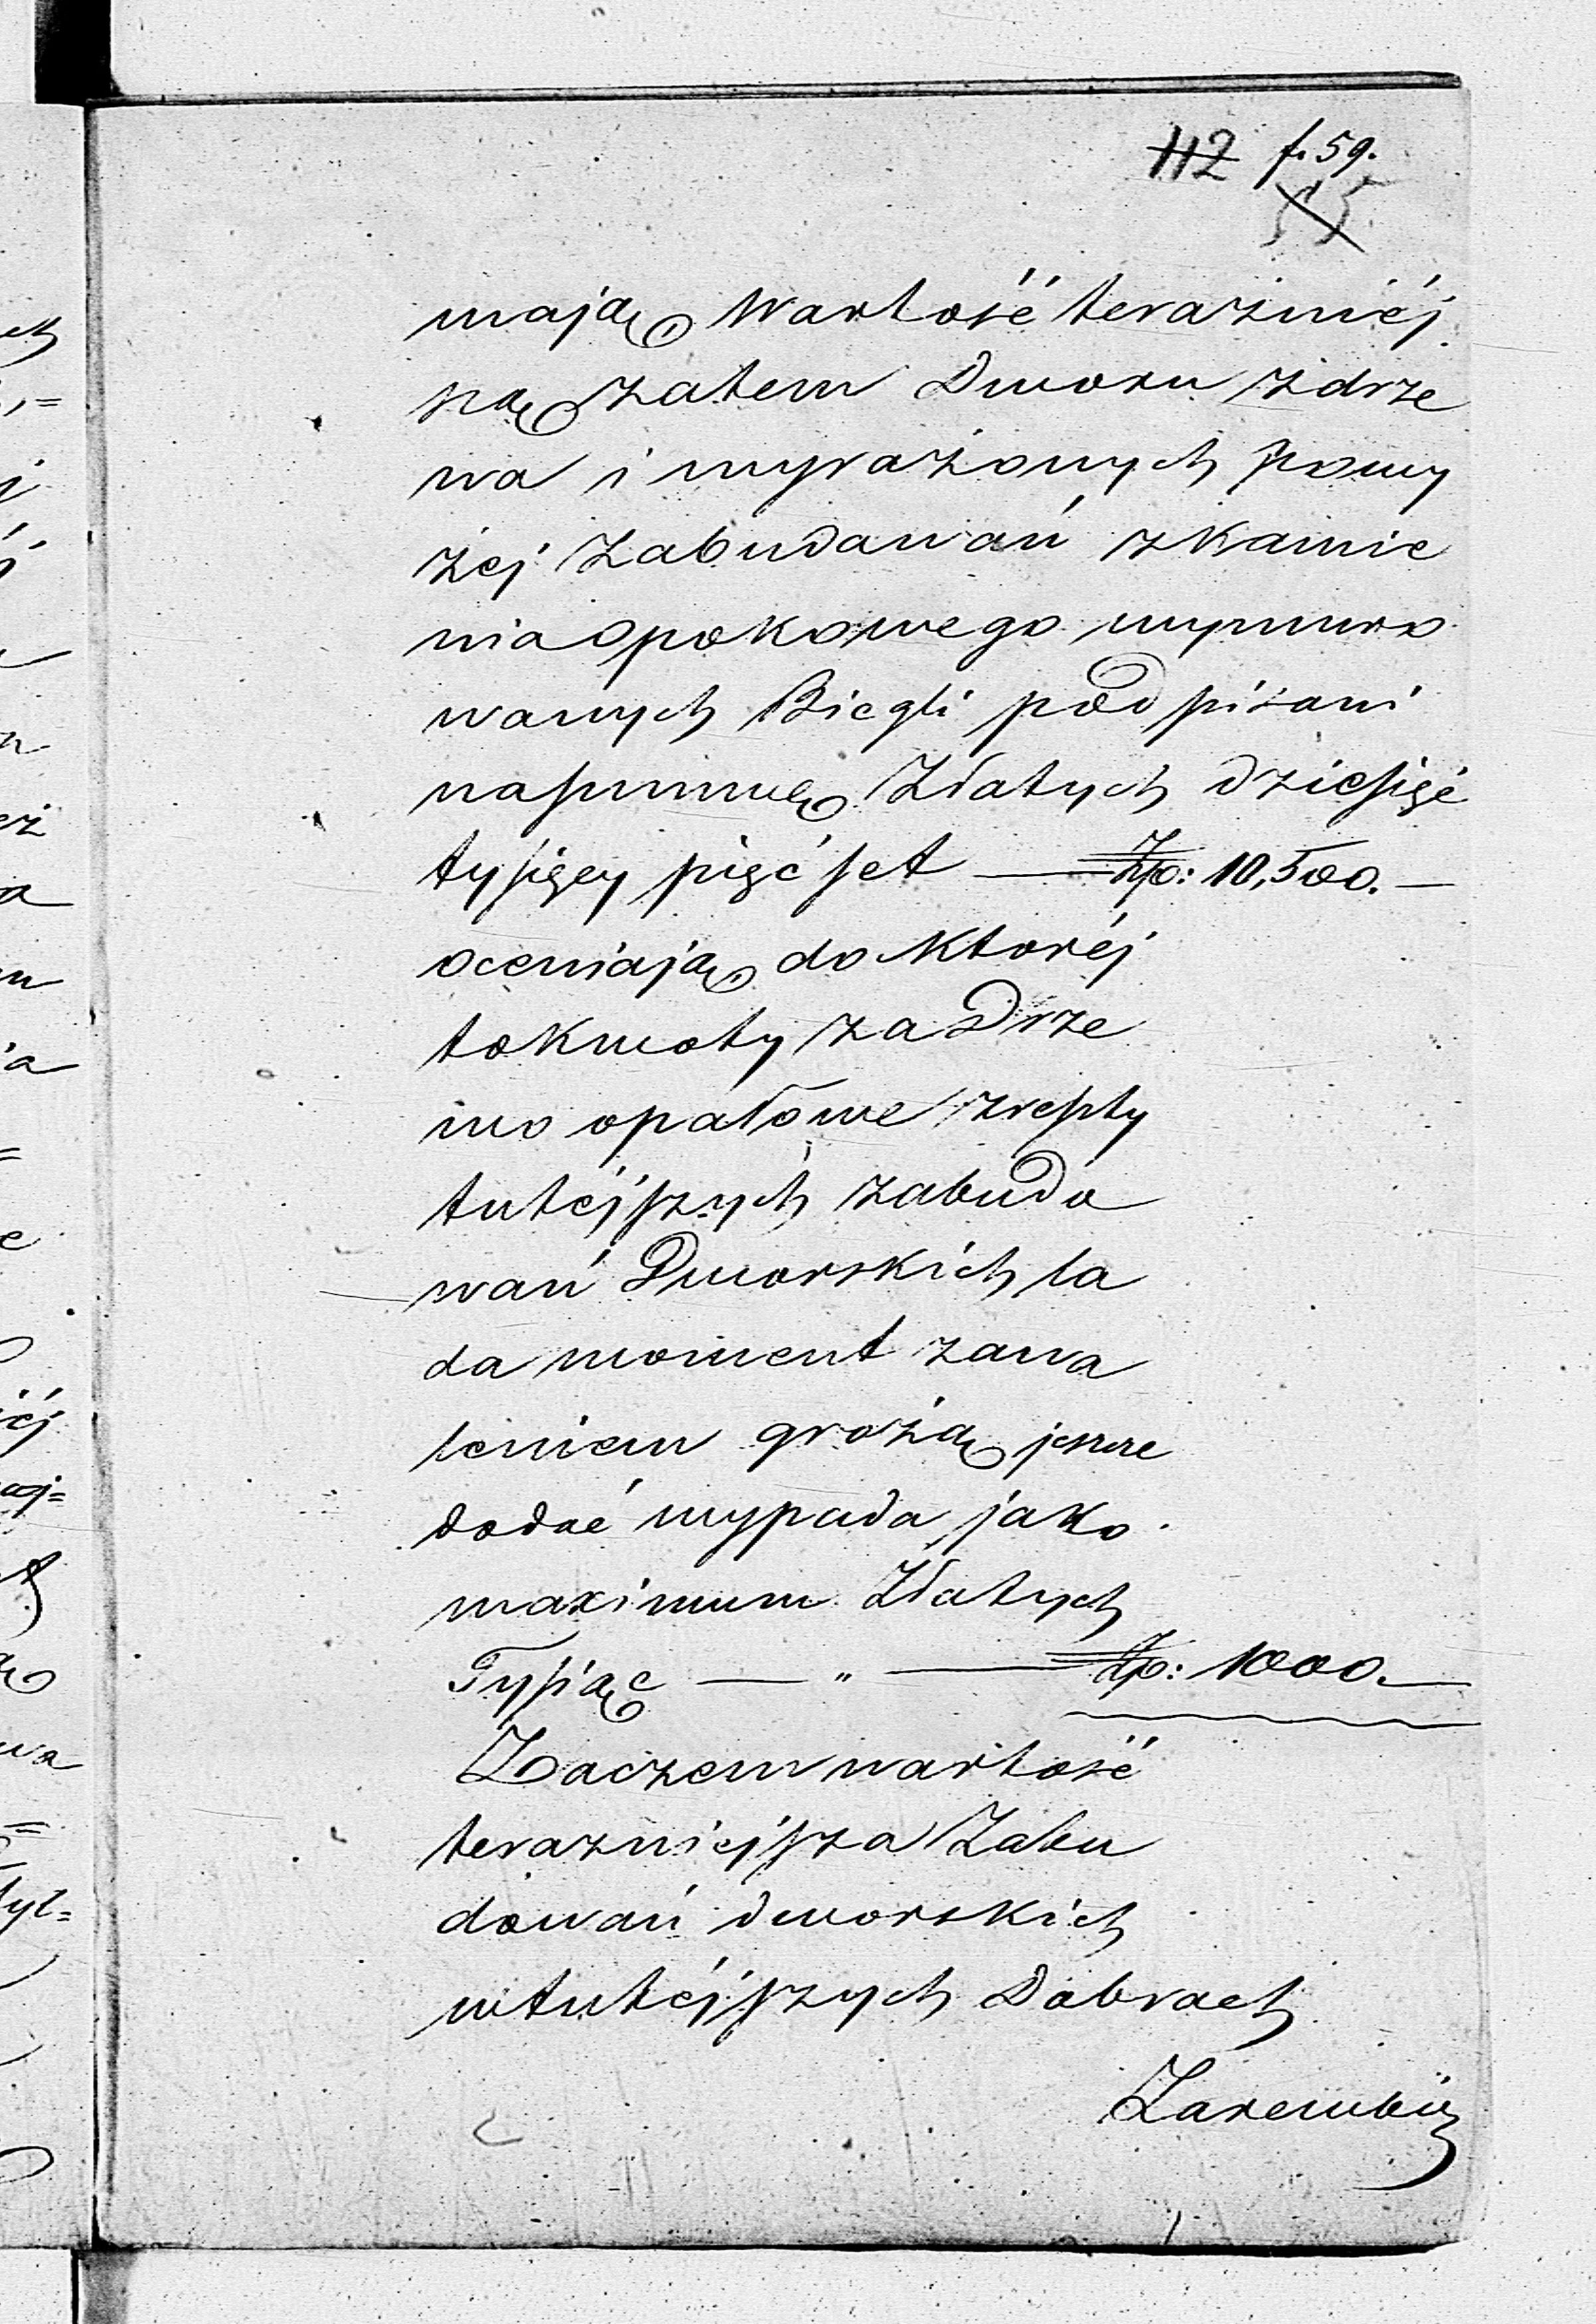 112 f. 59.
55
mają Wartość teraznié́j
szą zatem Dworu z drze
wa i wyrażonych powy
żej Zabudawań z kamie
nia opokowego wymuro
wanych Biegli podpisani
na summę Złotych dziesięć
tysięcy pięćset — Złp: 10,500. —
oceniają do któréj
to kwoty za Drze
wo opałowe z reszty
tutéjszych zabudo
wań Dworskich la
da moment zawa
leniem grożą jeszcze
dodać wypada jako
maximum Złotych
Tysiąc — „ — Złp: 1000. —
Zaczem wartość
terazniejsza Zabu
dowań dworskich
w tutéjszych Dobrach